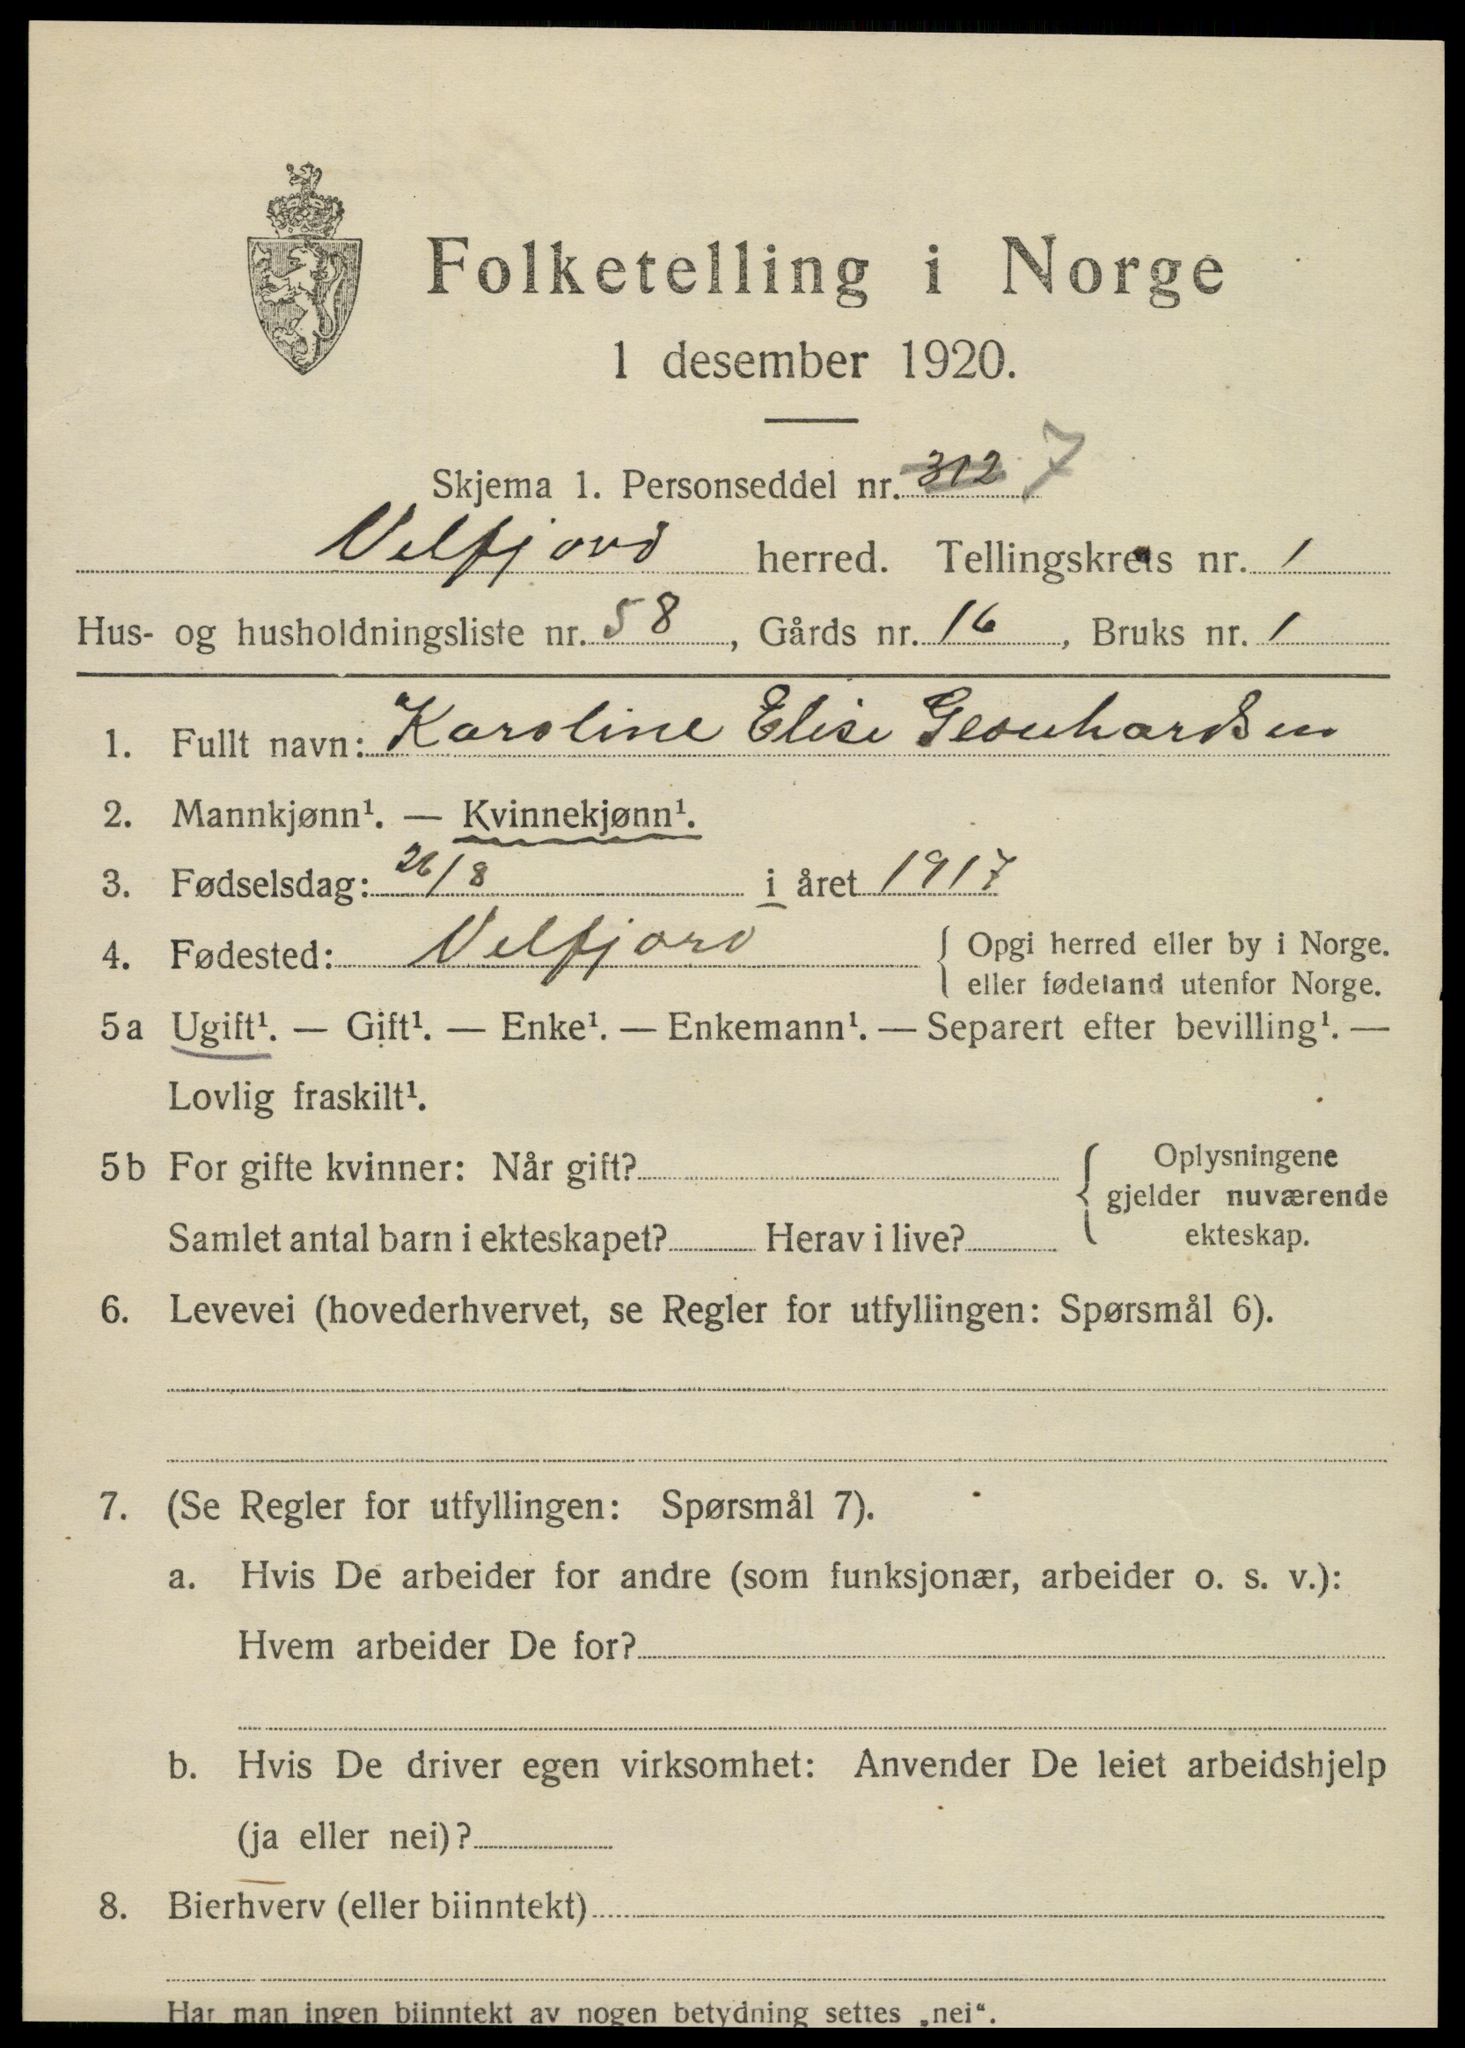 Folketelling i Norge
1 desember 1920.
Skjema 1. Personseddel nr. 312 7
Velfjord herred. Tellingskrets nr. 1
Hus- og husholdningsliste nr. 58, Gårds nr. 16, Bruks nr. 1
1. Fullt navn: Karoline Elise Leonhardsen
2. Mannkjønn¹. — Kvinnekjønn¹.
3. Fødselsdag: 26/8 i året 1917
4. Fødested: Velfjord { Opgi herred eller by i Norge.
eller fødeland utenfor Norge.
5a Ugift¹. — Gift¹. — Enke¹. — Enkemann¹. — Separert efter bevilling¹. —
Lovlig fraskilt¹.
5b For gifte kvinner: Når gift? { Oplysningene
gjelder nuværende
Samlet antal barn i ekteskapet? Herav i live? ekteskap.
6. Levevei (hovederhvervet, se Regler for utfyllingen: Spørsmål 6).
7. (Se Regler for utfyllingen: Spørsmål 7).
a. Hvis De arbeider for andre (som funksjonær, arbeider o. s. v.):
Hvem arbeider De for?
b. Hvis De driver egen virksomhet: Anvender De leiet arbeidshjelp
(ja eller nei)?
8. Bierhverv (eller biinntekt)
Har man ingen biinntekt av nogen betydning settes „nei“.